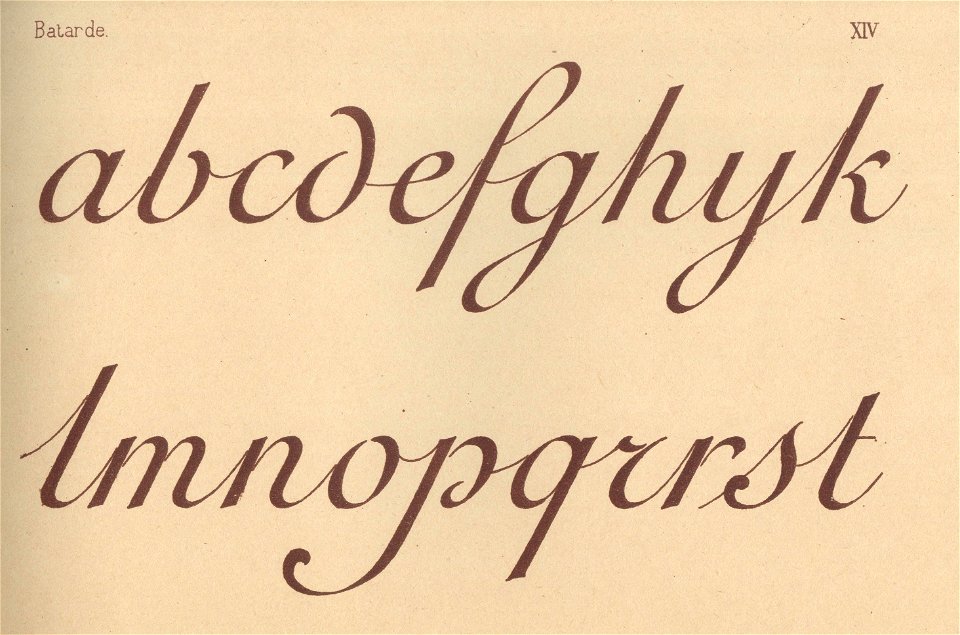 Batarde. XIV
abcdefghyk
lmnopqrrst